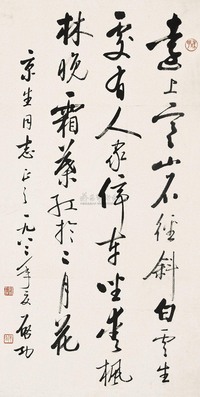 遠上寒山石徑斜白雲生
處有人家停車坐愛楓
林晚霜葉紅於二月花
京生同志正之一九八三年夏啟功